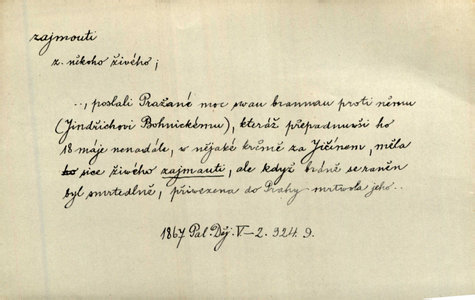 zajmouti
z. někoho živého;
.., poslali Pražané moc swau brannau proti němu
(Jindřichovi Bohnickému), kteráž přepadnuvši ho
18 máje nenadále, w nějaké krčmě za Jičínem, měla
ho sice živého zajmauti, ale když bráně se raněn
byl smrtedlně, přivezena do Prahy mrtvola jeho..
1867 Pal. Děj. V-2. 324. 9.